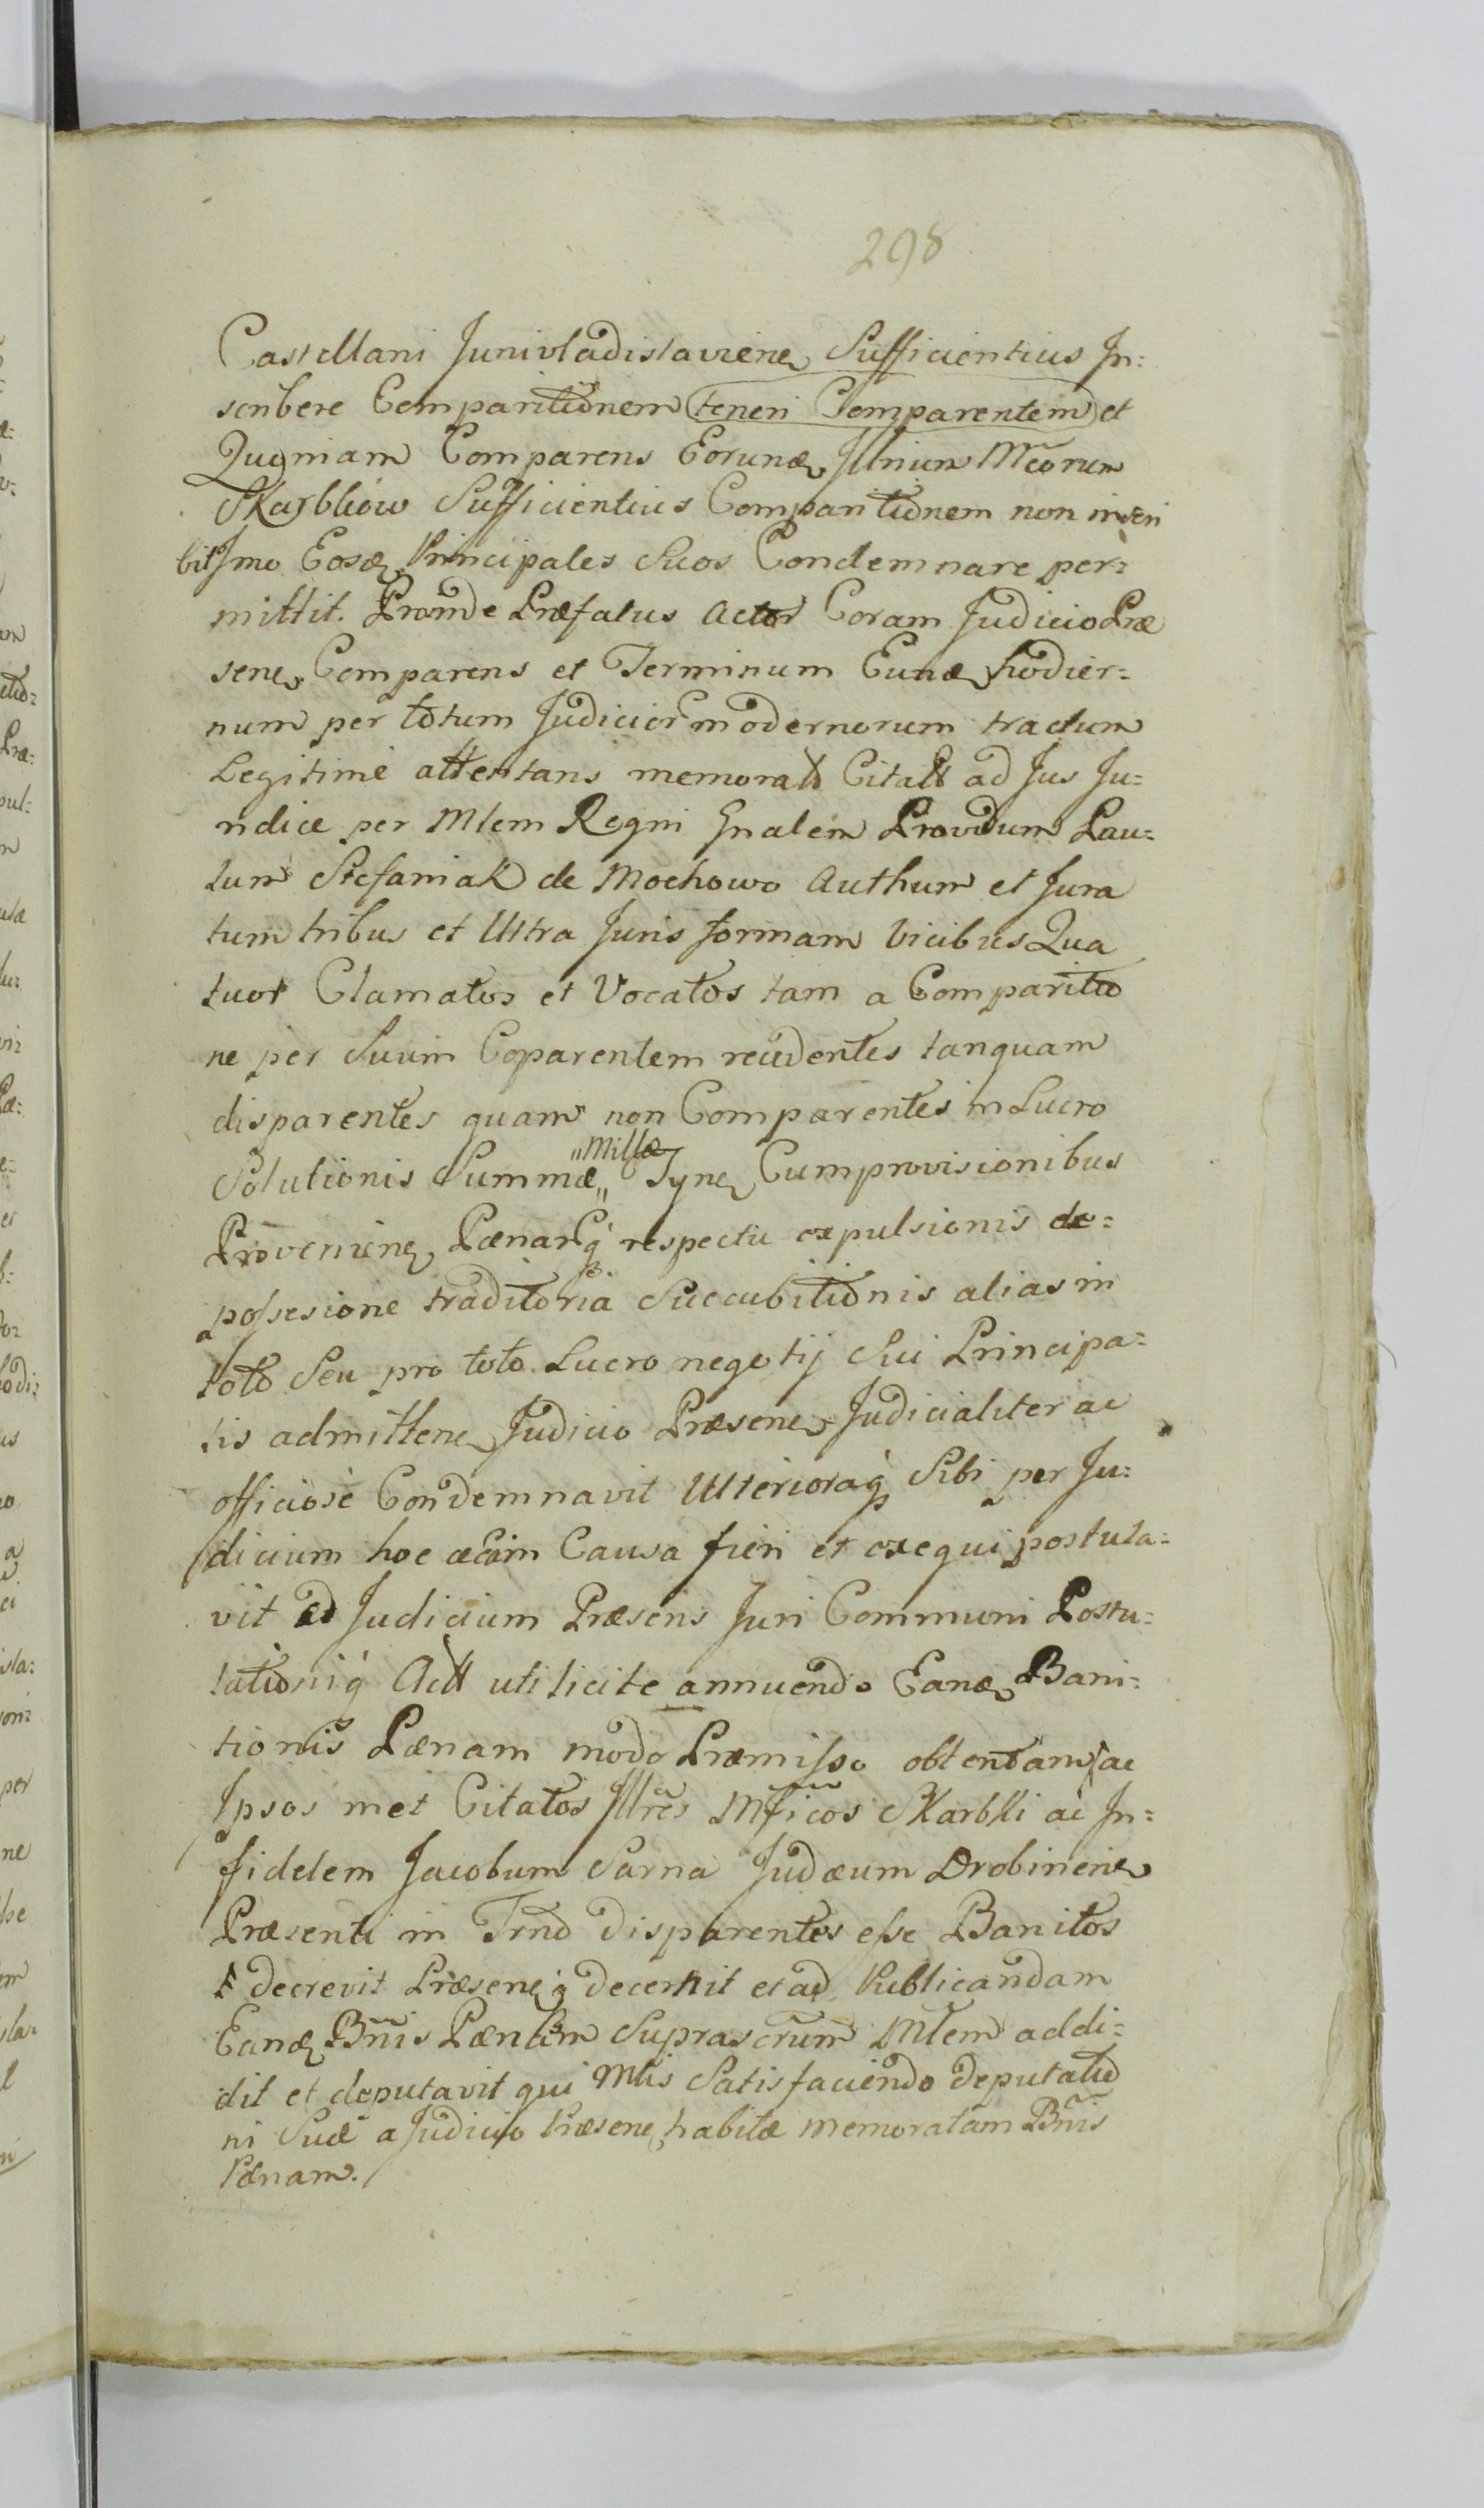 298
Castellani Junivladislaviene Sufficientius In=
scribere Comparitionem teneri Comparentem et
Quoniam Comparens Eorundᵉ Illrium Mcorum
Skarbków Sufficientius Comparitionem non inscri
bit Imo Eosdᵉ Principales Suos Condemnare per=
mittit. Proinde Præfatus Actor Coram Judicio Præ
sene Comparens et Terminum Eundᵉ hodier=
num per totum Judicior modernorum tractum
Legitimè attentans memoratt Citatt ad Jus Ju=
ridice per Mlem Regni Gnalem Providum Pau=
lum Stefaniak de Mochowo Authum et Jura
tum tribus et Ultra Juris formam Vicibus Qua
tuor Clamatos et Vocatos tam a Comparitio
ne per Suum Coparentem recedentes tanquam
disparentes quam non Comparentes in Lucro
Solutionis Summæ „Mille„ Tyne Cumprovisionibus
Proveniene Pænarq́ respectu expulsionis de=
possesione traditoria Succubitionis alias in
toto Seu pro toto Lucro negotij Sui Principa=
lis admittene Judicio Præsene Judicialiter ac
officiosè Condemnavit Ulterioraq́ Sibi per Ju=
dicium hoc æcãm Causa fieri et exequi postula=
vit Et Judicium Præsens Juri Communi Postu=
lationiq́ Actt uti licite annuendo Eandᵉ Bani=
tionis Pænam modo Præmisso obtentam ac
Ipsos met Citatos Illres Mficos Skarbki ac In=
fidelem Jacobum Sarna Judæum Drobinene
Præsenti in Trno disparentes esse Banitos
decrevit Præseneq́ decernit et ad Publicandam
Eandᵉ Bnis Pænam Suprascrum Mlem addi=
dit et deputavit qui Mlis Satisfaciendo deputatio
ni Suæ a Judicio Præsene habitæ memoratam Bnis
Pænam.